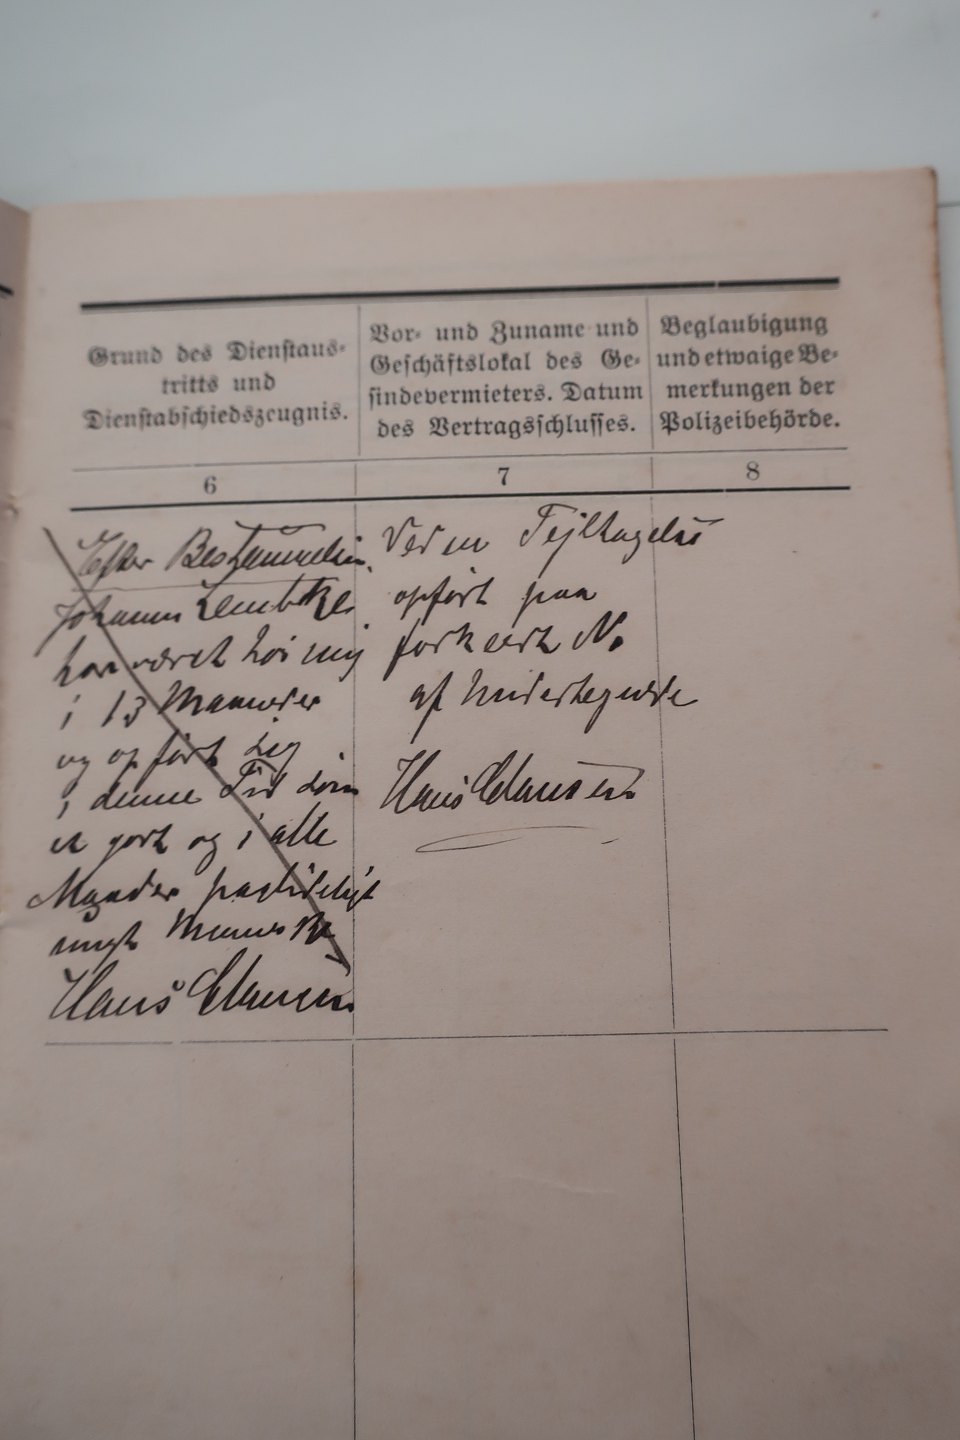 Grund des Dienstaus-
tritts und
Dienstabschiedszeugnis.
Vor- und Zuname und
Geschäftslokal des Ge-
sindevermieters. Datum
des Vertragsschlusses.
Beglaubigung
und etwaige Be-
merkungen der
Polizeibehörde.
6
7
8
Efter Bestemmelsen
Johann Lembke
har været hos mig
i 13 Maaneder
og opført sig
i denne Tid som
et godt og i alle
Maader paalideligt
ungt Menneske
Hans Clausen
Ved en Fejltagelse
opført paa
forkeert No
af Undertegnede
Hans Clausen